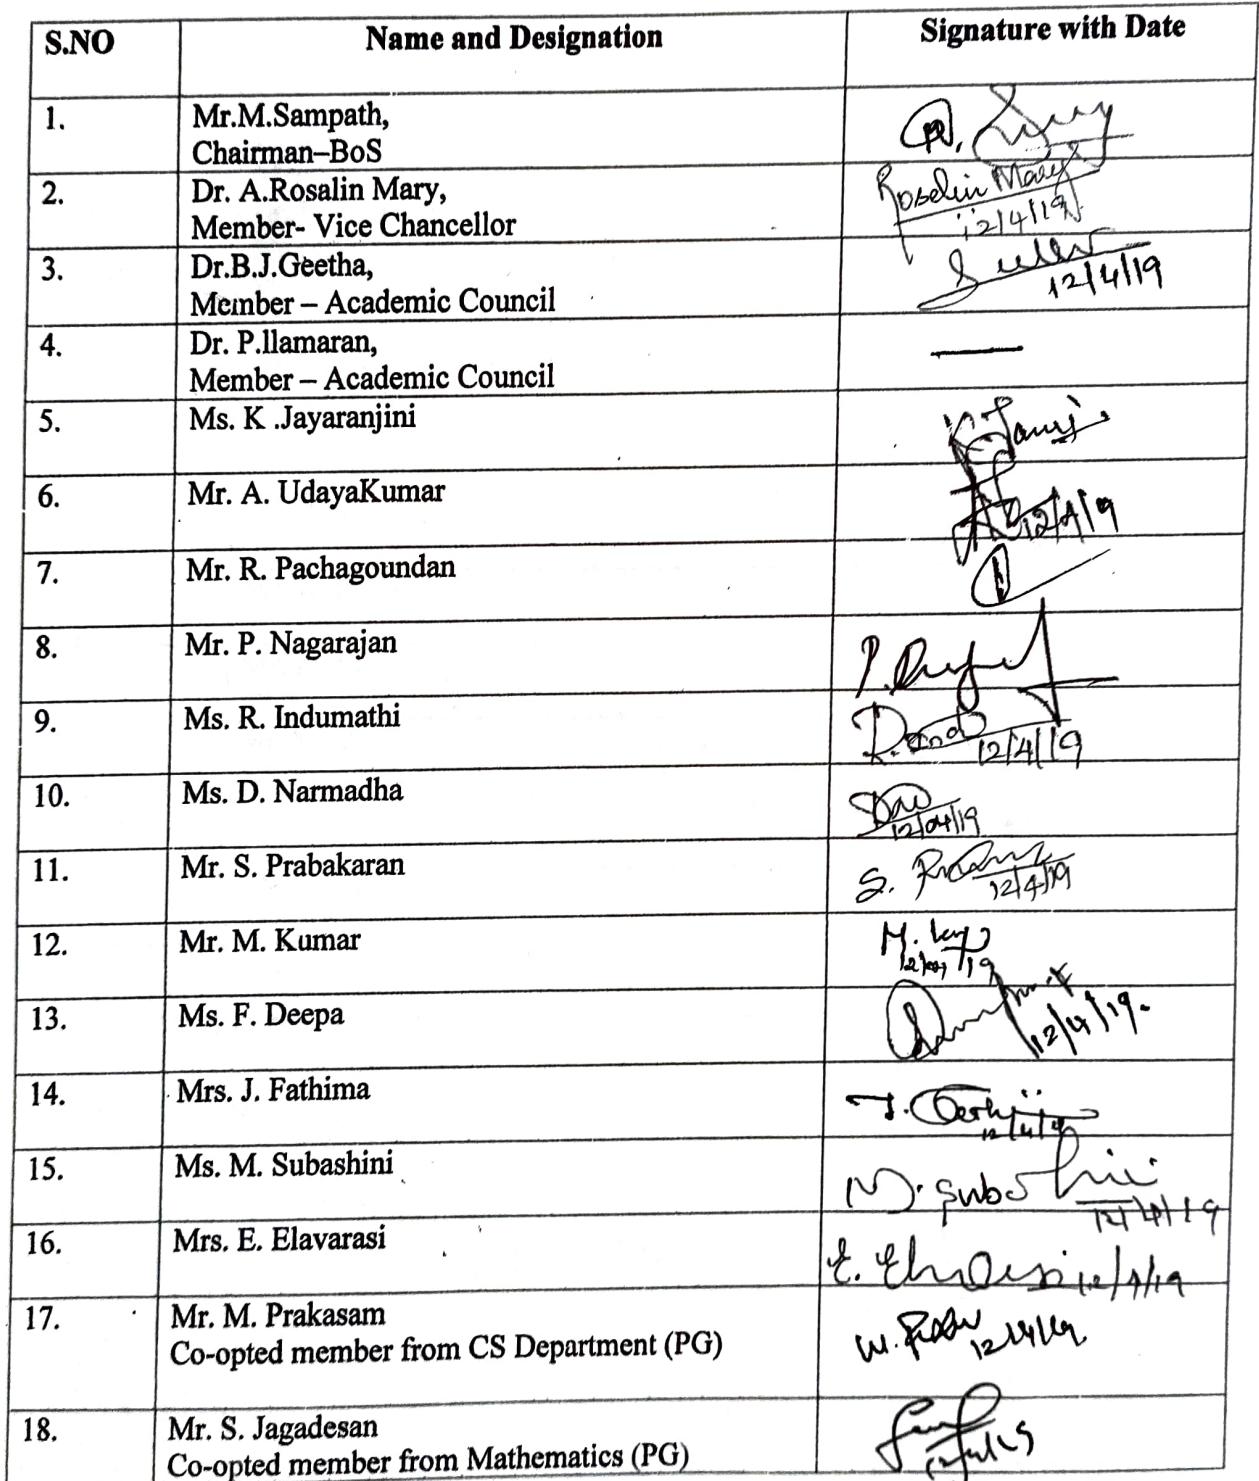 S.NO Name and Designation Signature with Date
1. Mr.M.Sampath,
Chairman–BoS
2. Dr. A.Rosalin Mary, Roselin Mary
Member- Vice Chancellor 12/4/19
3. Dr.B.J.Geetha,
Member – Academic Council 12/4/19
4. Dr. P.llamaran, —
Member – Academic Council
5. Ms. K .Jayaranjini
6. Mr. A. UdayaKumar
12/4/19
7. Mr. R. Pachagoundan
8. Mr. P. Nagarajan
9. Ms. R. Indumathi
12/4/19
10. Ms. D. Narmadha
12/04/19
11. Mr. S. Prabakaran
12/4/19
12. Mr. M. Kumar
13. Ms. F. Deepa
12/4/19.
14. Mrs. J. Fathima
12/4/19
15. Ms. M. Subashini M. Subashini
12/4/19
16. Mrs. E. Elavarasi
E. Elavarasi 12/4/19
17. Mr. M. Prakasam
Co-opted member from CS Department (PG) 12/4/19
18. Mr. S. Jagadesan
Co-opted member from Mathematics (PG)